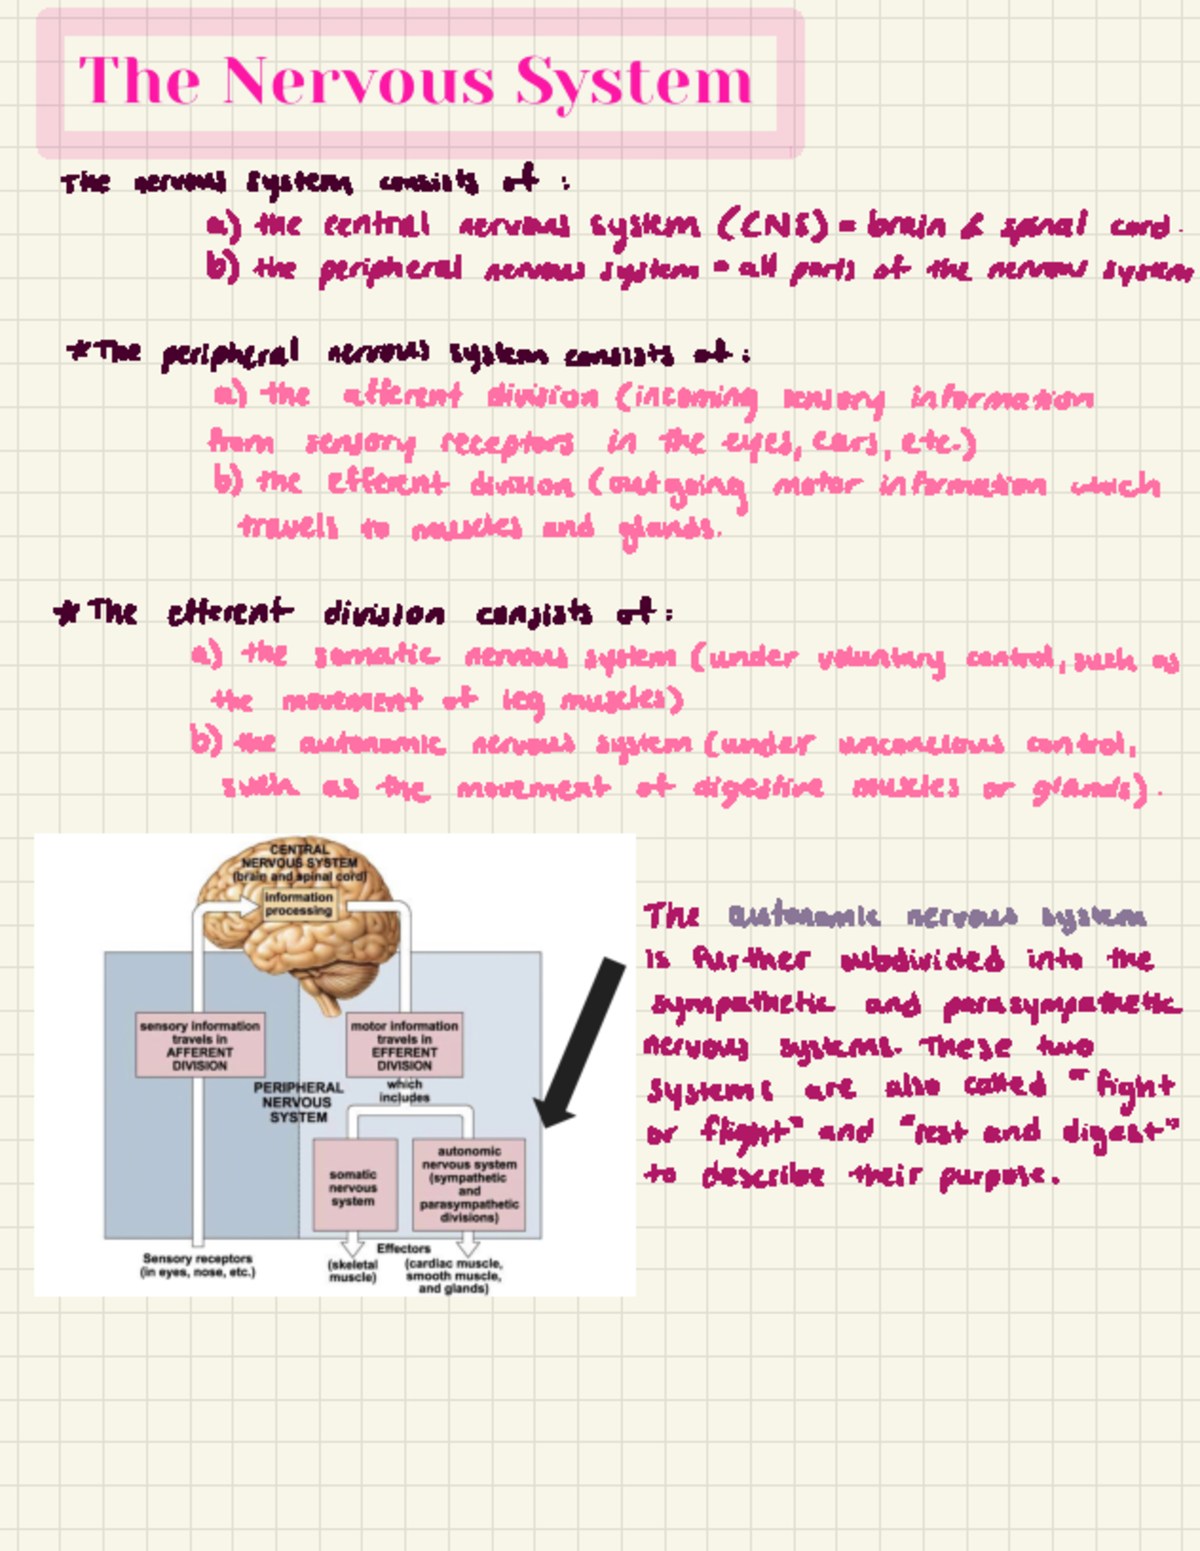 The Nervous System
The nervous system consists of :
a) the central nervous system (CNS) = brain & spinal cord.
b) the peripheral nervous system = all parts of the nervous system
*The peripheral nervous system consists of:
a) the afferent division (incoming sensory information
from sensory receptors in the eyes, ears, etc.)
b) the efferent division (outgoing motor information which
travels to muscles and glands.
*The efferent division consists of:
a) the somatic nervous system (under voluntary control, such as
the movement of leg muscles)
b) the autonomic nervous system (under unconcious control,
such as the movement of digestive muscles or glands).
CENTRAL
NERVOUS SYSTEM
(brain and spinal cord)
information
processing
sensory information
travels in
AFFERENT
DIVISION
motor information
travels in
EFFERENT
DIVISION
PERIPHERAL
NERVOUS
SYSTEM
which
includes
somatic
nervous
system
autonomic
nervous system
(sympathetic
and
parasympathetic
divisions)
Sensory receptors
(in eyes, nose, etc.)
Effectors
(skeletal
muscle)
(cardiac muscle,
smooth muscle,
and glands)
The autonomic nervous system
is further subdivided into the
sympathetic and parasympathetic
nervous systems. These two
systems are also called "fight
or flight" and "rest and digest"
to describe their purpose.